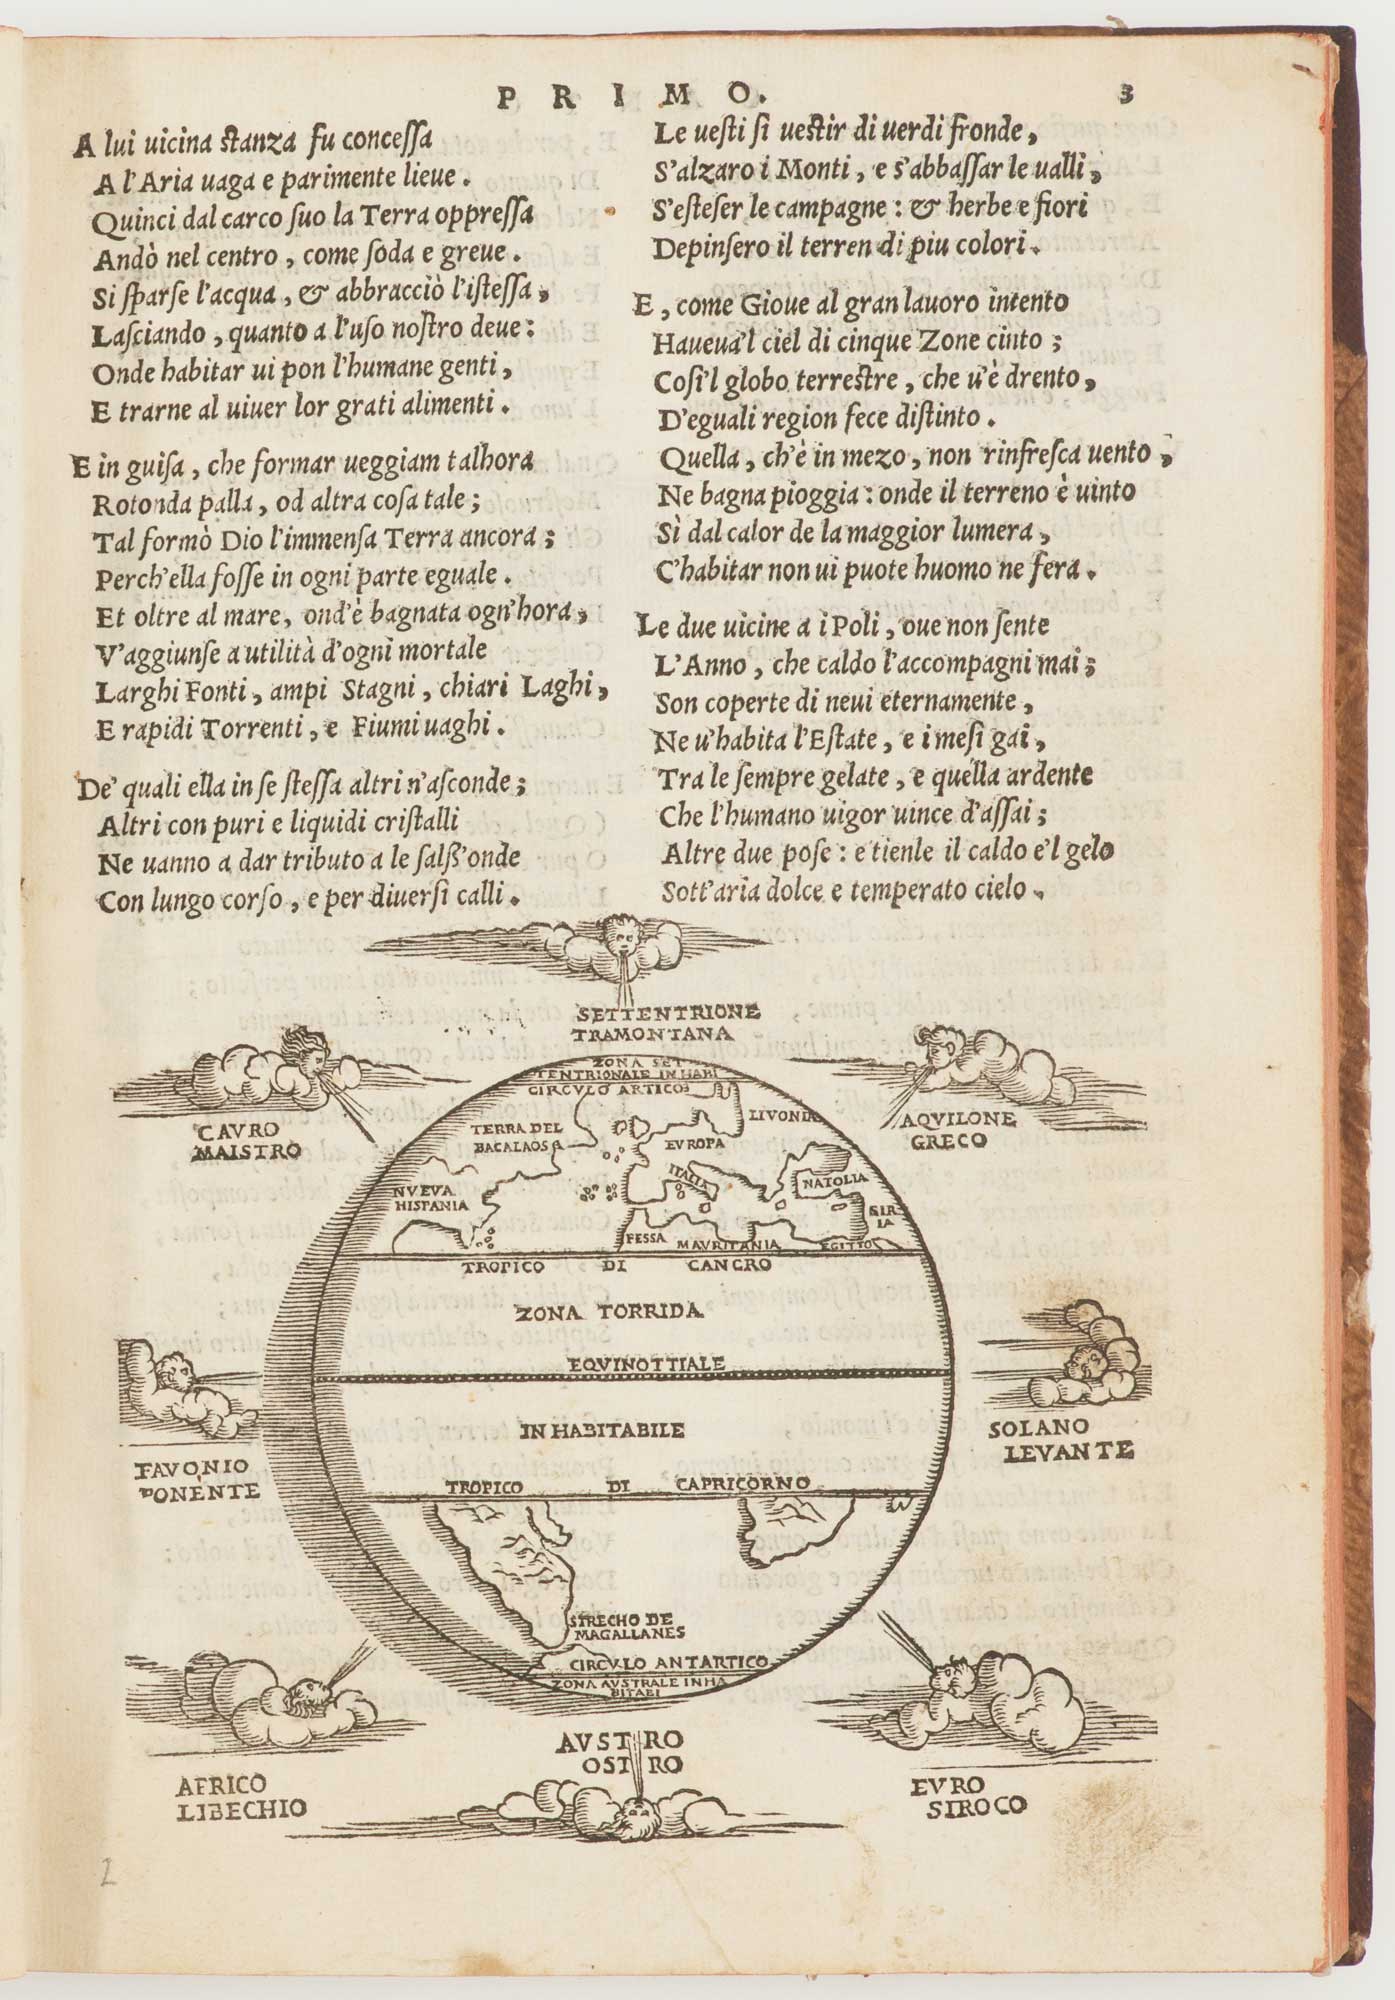 PRIMO.
3
A lui uicina stanza fu concessa
A l'Aria uaga e parimente lieue.
Quinci dal carco suo la Terra oppressa
Andò nel centro, come soda e greue.
Si sparse l'acqua, & abbracciò l'istessa,
Lasciando, quanto a l'uso nostro deue:
Onde habitar ui pon l'humane genti,
E trarne al uiuer lor grati alimenti.
E in guisa, che formar ueggiam talhora
Rotonda palla, od altra cosa tale;
Tal formò Dio l'immensa Terra ancora;
Perch'ella fosse in ogni parte eguale.
Et oltre al mare, ond'è bagnata ogn'hora,
V'aggiunse a utilità d'ogni mortale
Larghi Fonti, ampi Stagni, chiari Laghi,
E rapidi Torrenti, e Fiumi uaghi.
De' quali ella in se stessa altri n'asconde;
Altri con puri e liquidi cristalli
Ne uanno a dar tributo a le salß'onde
Con lungo corso, e per diuersi calli.
Le uesti si uestir di uerdi fronde,
S'alzaro i Monti, e s'abbassar le ualli,
S'esteser le campagne: & herbe e fiori
Depinsero il terren di piu colori.
E, come Gioue al gran lauoro intento
Haueua'l ciel di cinque Zone cinto;
Cosi'l globo terrestre, che u'è drento,
D'eguali region fece distinto.
Quella, ch'è in mezo, non rinfresca uento,
Ne bagna pioggia: onde il terreno è uinto
Sì dal calor de la maggior lumera,
C'habitar non ui puote huomo ne fera.
Le due uicine a i Poli, oue non sente
L'Anno, che caldo l'accompagni mai;
Son coperte di neui eternamente,
Ne u'habita l'Estate, e i mesi gai,
Tra le sempre gelate, e quella ardente
Che l'humano uigor uince d'assai;
Altre due pose: e tienle il caldo e'l gelo
Sott'aria dolce e temperato cielo.
SETTENTRIONE
TRAMONTANA
CAVRO
MAISTRO
AQVILONE
GRECO
ZONA SET
TENTRIONALE INHABI
CIRCVLO ARTICO
TERRA DEL
BACALAOS
LIVONIA
EVROPA
ITALIA
NATOLIA
NVEVA
HISPANIA
SIR
IA
FESSA
MAVRITANIA
EGITTO
TROPICO DI CANCRO
ZONA TORRIDA
EQVINOTTIALE
INHABITABILE
FAVONIO
PONENTE
SOLANO
LEVANTE
TROPICO DI CAPRICORNO
STRECHO DE
MAGALLANES
CIRCVLO ANTARTICO
ZONA AVSTRALE INHA
BITABI
AVSTRO
OSTRO
AFRICO
LIBECHIO
EVRO
SIROCO
2